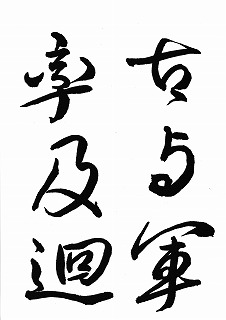 古与軍
率及迴